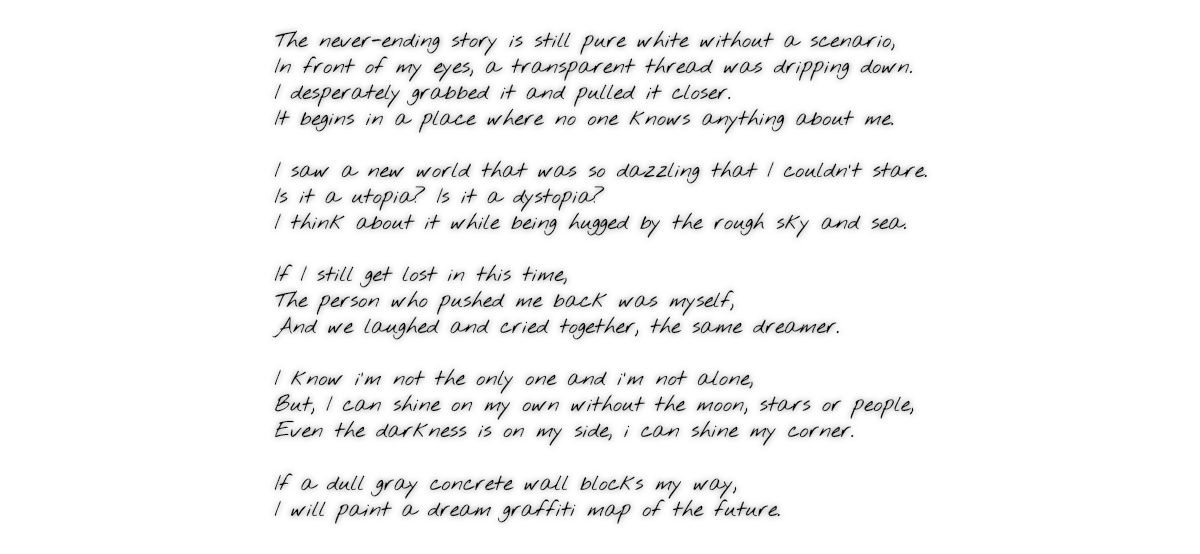 The never-ending story is still pure white without a scenario,
In front of my eyes, a transparent thread was dripping down.
I desperately grabbed it and pulled it closer.
It begins in a place where no one knows anything about me.
I saw a new world that was so dazzling that I couldn't stare.
Is it a utopia? Is it a dystopia?
I think about it while being hugged by the rough sky and sea.
If I still get lost in this time,
The person who pushed me back was myself,
And we laughed and cried together, the same dreamer.
I know i'm not the only one and i'm not alone,
But, I can shine on my own without the moon, stars or people,
Even the darkness is on my side, i can shine my corner.
If a dull gray concrete wall blocks my way,
I will paint a dream graffiti map of the future.